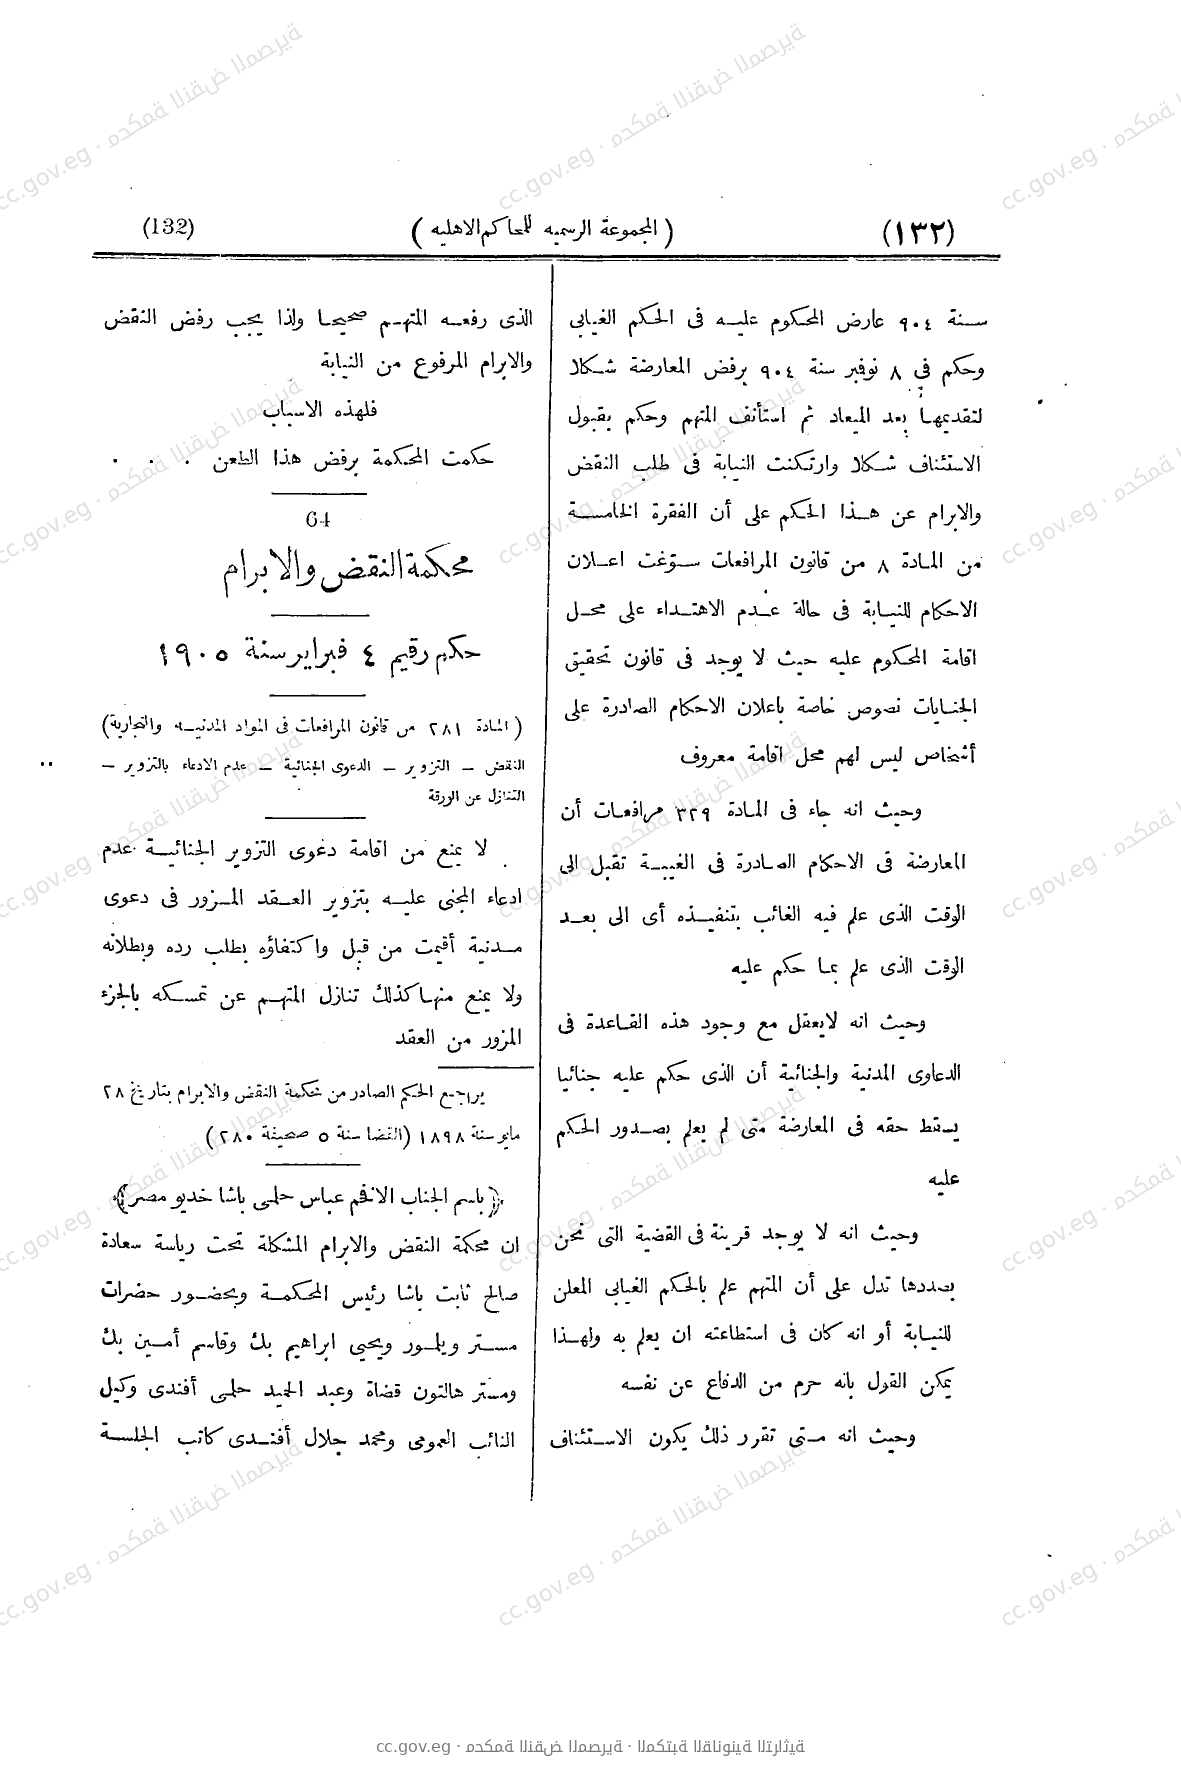 (١٣٢)
( المجموعة الرسميه للمحاكم الاهليه )
(132)
سنة ٩٠٤ عارض المحكوم عليه فى الحكم الغيابى
وحكم في ٨ نوفمبر سنة ٩٠٤ برفض المعارضة شكلا
لتقديمها بعد الميعاد ثم استأنف المتهم وحكم بقبول
الاستئناف شكلا وارتكنت النيابة فى طلب النقض
والابرام عن هذا الحكم على أن الفقرة الخامسة
من المادة ٨ من قانون المرافعات سوّغت اعلان
الاحكام للنيابة فى حالة عدم الاهتداء على محل
اقامة المحكوم عليه حيث لا يوجد فى قانون تحقيق
الجنايات نصوص خاصة باعلان الاحكام الصادرة على
أشخاص ليس لهم محل اقامة معروف
وحيث انه جاء فى المادة ٣٢٩ مرافعات أن
المعارضة فى الاحكام الصادرة فى الغيبة تقبل الى
الوقت الذى علم فيه الغائب بتنفيذه أى الى بعد
الوقت الذى علم بما حكم عليه
وحيث انه لايعقل مع وجود هذه القاعدة فى
الدعاوى المدنية والجنائية أن الذى حكم عليه جنائيا
يسقط حقه فى المعارضة متى لم يعلم بصدور الحكم
عليه
وحيث انه لا يوجد قرينة فى القضية التى نحن
بصددها تدل على أن المتهم علم بالحكم الغيابى المعلن
للنيابة أو انه كان فى استطاعته ان يعلم به ولهذا
يمكن القول بانه حرم من الدفاع عن نفسه
وحيث انه متى تقرر ذلك يكون الاستئناف
الذى رفعه المتهم صحيحا ولذا يجب رفض النقض
والابرام المرفوع من النيابة
فلهذه الاسباب
حكمت المحكمة برفض هذا الطعن . . .
64
محكمة النقض والابرام
حكم رقيم ٤ فبراير سنة ١٩٠٥
( المادة ٢٨١ من قانون المرافعات فى المواد المدنيه والتجارية)
النقض – التزوير – الدعوى الجنائية – عدم الادعاء بالتزوير –
التنازل عن الورقة
لا يمنع من اقامة دعوى التزوير الجنائية عدم
ادعاء المجنى عليه بتزوير العقد المزور فى دعوى
مدنية أقيمت من قبل واكتفاؤه بطلب رده وبطلانه
ولا يمنع منها كذلك تنازل المتهم عن تمسكه بالجزء
المزور من العقد
يراجع الحكم الصادر من محكمة النقض والابرام بتاريخ ٢٨
مايو سنة ١٨٩٨ (القضا سنة ٥ صحيفة ٢٨٠)
﴿باسم الجناب الافخم عباس حلمى باشا خديو مصر﴾
ان محكمة النقض والابرام المشكلة تحت رياسة سعادة
صالح ثابت باشا رئيس المحكمة وبحضور حضرات
مستر ويلمور ويحيى ابراهيم بك وقاسم أمين بك
ومستر هالتون قضاة وعبد الحميد حلمى أفندى وكيل
النائب العمومى ومحمد جلال أفندى كاتب الجلسة
cc.gov.eg · محكمة النقض المصرية · المكتبة القانونية التراثية